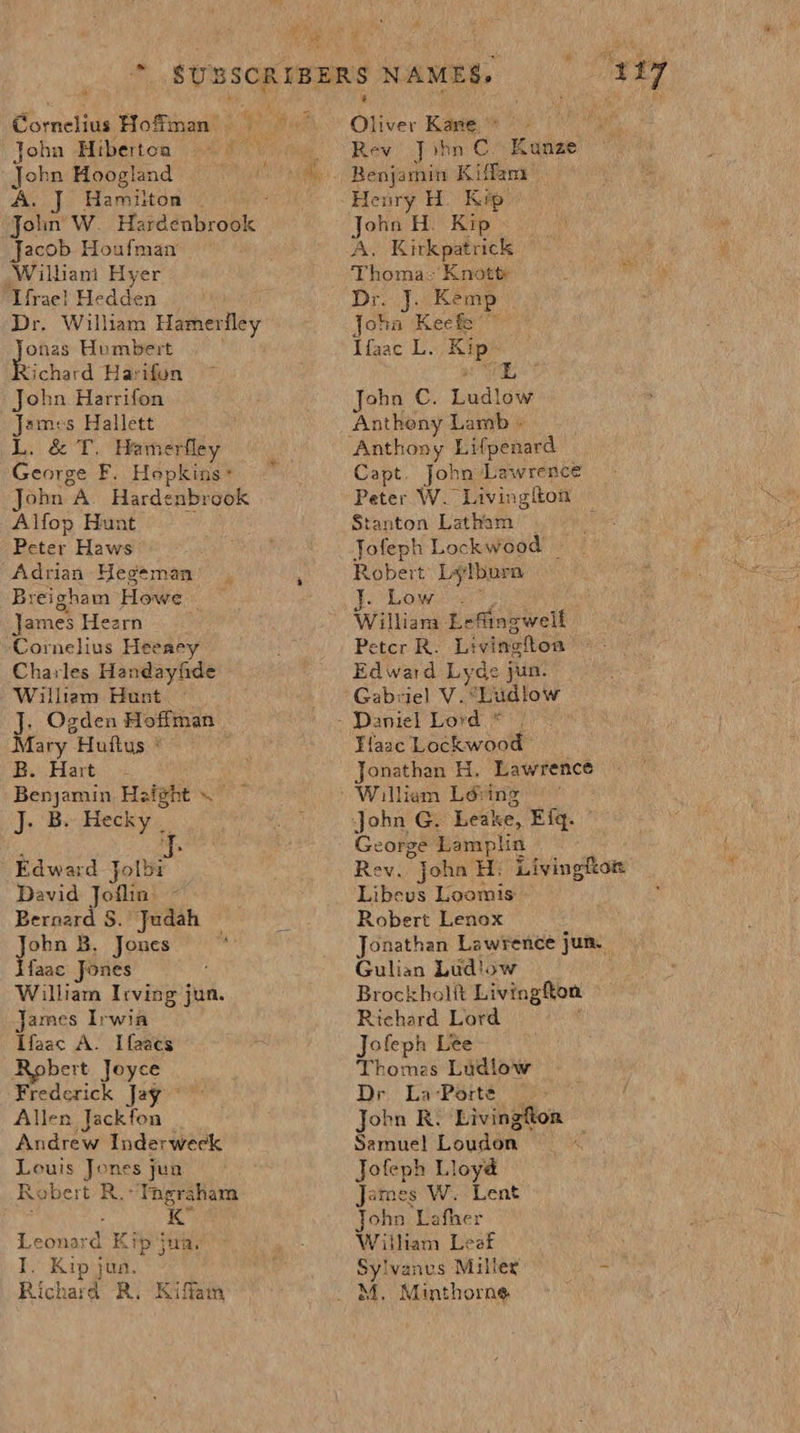 SUBSCRIBERS NAMES. 117
Cornelius Hoffman
John Hiberton
John Hoogland
A. J Hamilton
John W. Hardenbrook
Jacob Houfman
William Hyer
Iſrael Hedden
Dr. William Hamerſley
Jonas Humbert
Richard Hariſon
John Harriſon
James Hallett
L. & T. Hamerſley
George F. Hopkins
John A Hardenbrook
Alſop Hunt
Peter Haws
Adrian Hegeman
Breigham Howe
James Hearn
Cornelius Heeney
Charles Handayſide
William Hunt
J. Ogden Hoffman
Mary Huſtus
B. Hart
Benjamin Haight
J. B. Hecky
J.
Edward Jolbi
David Joſlin
Bernard S. Judah
John B. Jones
Iſaac Jones
William Irving jun.
James Irwin
Iſaac A. Iſaacs
Robert Joyce
Frederick Jay
Allen Jackſon
Andrew Inderweek
Louis Jones jun
Robert R. Ingraham
K
Leonard Kip jun.
I. Kip jun.
Richard R. Kiſſam
Oliver Kane
Rev John C. Kunze
Benjamin Kiſſam
Henry H. Kip
John H. Kip
A. Kirkpatrick
Thomas Knott
Dr. J. Kemp
John Keefe
Iſaac L. Kip
L
John C. Ludlow
Anthony Lamb
Anthony Liſpenard
Capt. John Lawrence
Peter W. Livingſton
Stanton Latham
Joſeph Lockwood
Robert Lylburn
J. Low
William Leffingwell
Peter R. Livingſton
Edward Lyde jun.
Gabriel V. Ludlow
Daniel Lord
Iſaac Lockwood
Jonathan H. Lawrence
William Loring
John G. Leake, Eſq.
George Lamplin
Rev. John H. Livingſton
Libeus Loomis
Robert Lenox
Jonathan Lawrence jun.
Gulian Ludlow
Brockholſt Livingſton
Richard Lord
Joſeph Lee
Thomas Ludlow
Dr La Porte
John R. Livingſton
Samuel Loudon
Joſeph Lloyd
James W. Lent
John Laſher
William Leaf
Sylvanus Miller
M. Minthorne